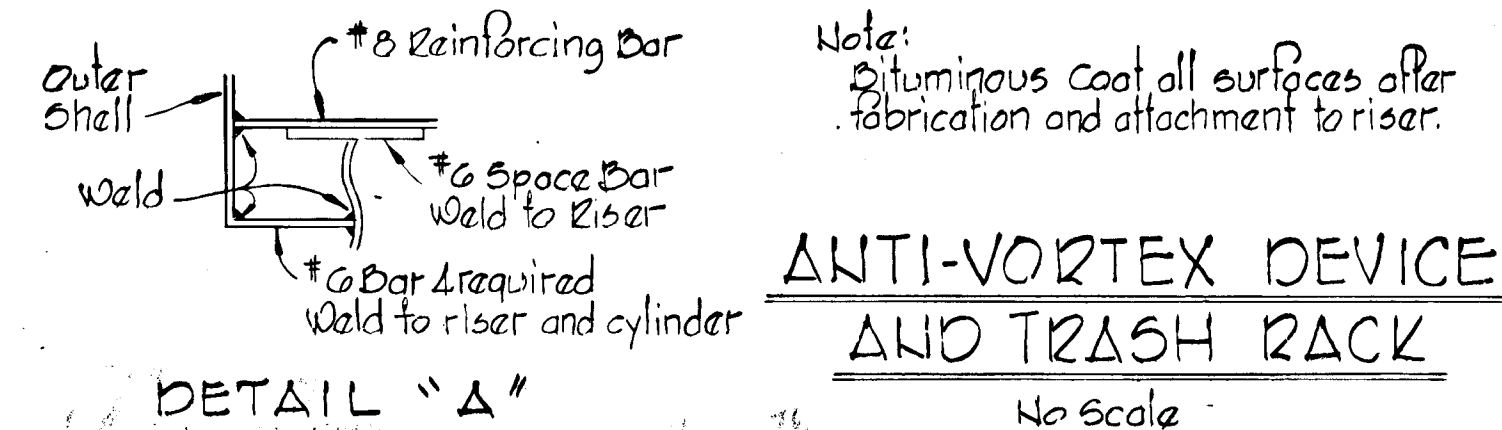 Outer
Shell
#8 Reinforcing Bar
Weld
#6 Space Bar
Weld to Riser
#6 Bar 4 required
Weld to riser and cylinder
DETAIL "A"
Note:
Bituminous Coat all surfaces after
fabrication and attachment to riser.
ANTI-VORTEX DEVICE
AND TRASH RACK
No Scale